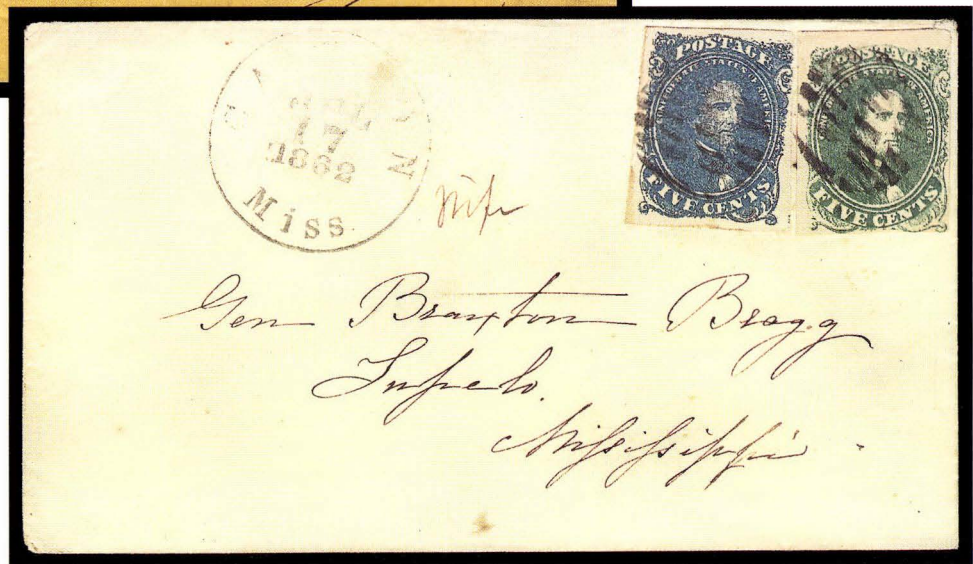 1862
Miss
POSTAGE
CONFEDERATE STATES OF AMERICA
FIVE CENTS
POSTAGE
CONFEDERATE STATES OF AMERICA
FIVE CENTS
Wife
Gen Braxton Bragg
Tupelo.
Mississippi